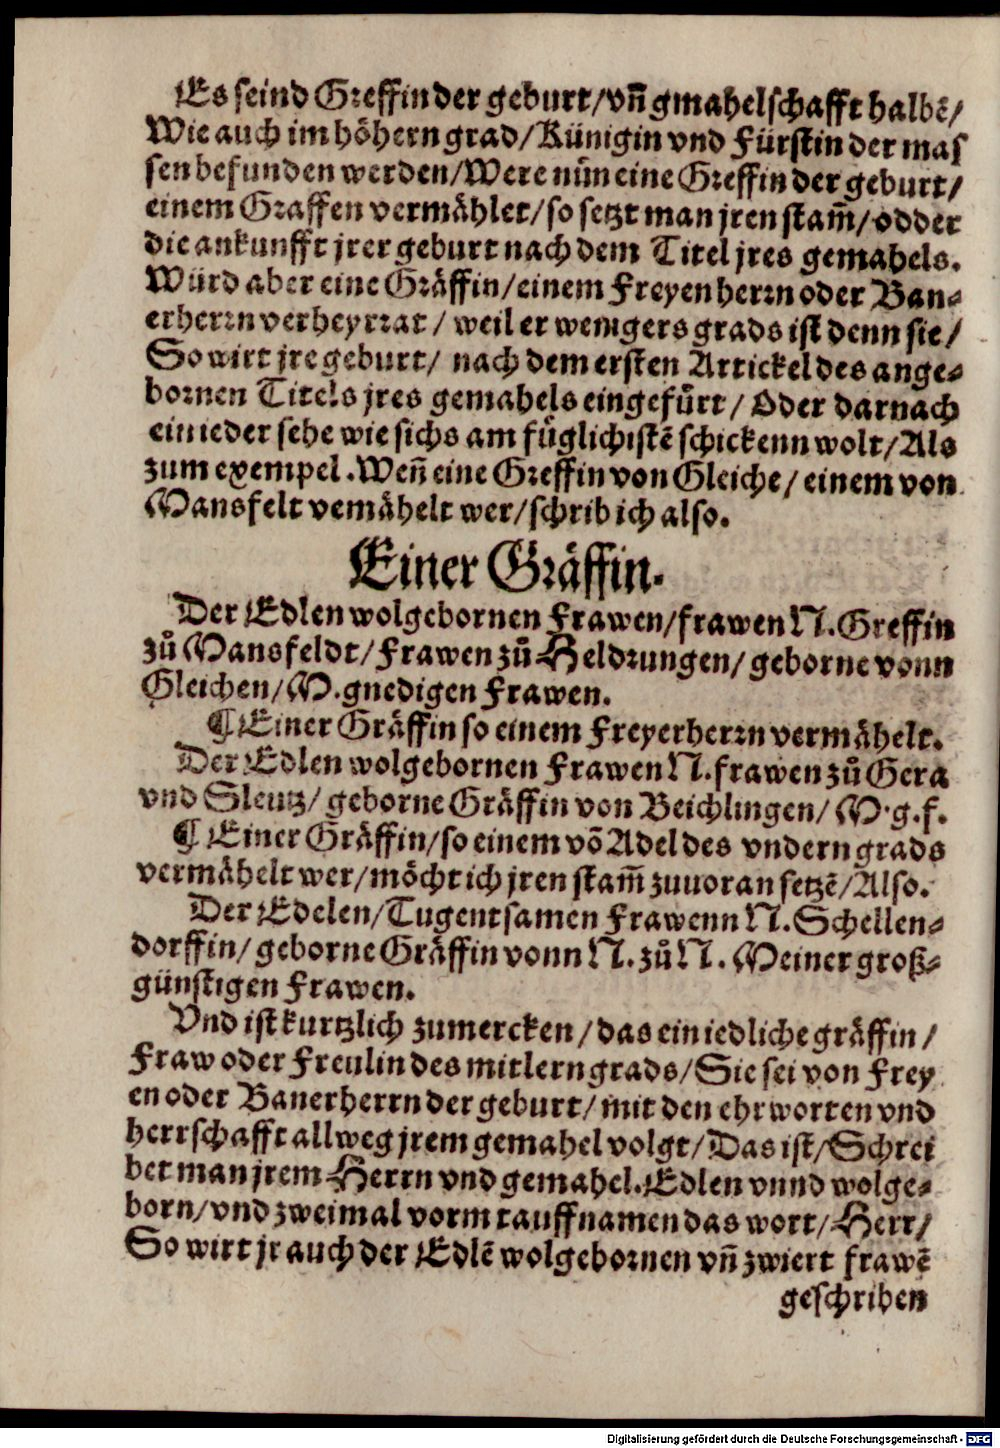 Es seind Greffin der geburt/vn̄ gmahelschafft halbē/
Wie auch im höhern grad/Künigin vnd Fürstin der mas
sen befunden werden/Were nůn eine Greffin der geburt/
einem Graffen vermählet/so setzt man jren stam̄/odder
die ankunfft jrer geburt nach dem Titel jres gemahels.
Würd aber eine Gräffin/einem Freyen herrn oder Ban⸗
erherrn verheyrrat/ weil er wenigers grads ist denn sie/
So wirt jre geburt/ nach dem ersten Artickel des ange⸗
bornen Titels jres gemahels eingefürt/ Oder darnach
ein ieder sehe wie sichs am füglichistē schickenn wolt/Als
zum exempel. Wen̄ eine Greffin von Gleiche/ einem von
Mansfelt vemähelt wer/schrib ich also.
Einer Gräffin.
Der Edlen wolgebornen Frawen/frawen N. Greffin
zů Mansfeldt/Frawen zů Heldrungen/ geborne vonn
Gleichen/M. gnedigen Frawen.
¶ Einer Gräffin so einem Freyerherrn vermähelt.
Der Edlen wolgebornen Frawen N. frawen zů Gera
vnd Sleutz/ geborne Gräffin von Beichlingen/ M. g. f.
¶ Einer Gräffin/so einem vō Adel des vndern grads
vermähelt wer/möcht ich jren stam̄ zuuoran setzē/Also.
Der Edelen/Tugentsamen Frawenn N. Schellen⸗
dorffin/ geborne Gräffin vonn N. zů N. Meiner groß⸗
günstigen Frawen.
Vnd ist kurtzlich zumercken/das ein iedliche gräffin/
Fraw oder Freulin des mitlern grads/Sie sei von Frey
en oder Banerherrn der geburt/mit den ehrworten vnd
herrschafft allweg jrem gemahel volgt/Das ist/Schrei
bet man jrem Herrn vnd gemahel. Edlen vnnd wolge⸗
born/vnd zweimal vorm tauffnamen das wort/Herr/
So wirt jr auch der Edlē wolgebornen vn̄ zwiert frawē
geschriben
Digitalisierung gefördert durch die Deutsche Forschungsgemeinschaft - DFG